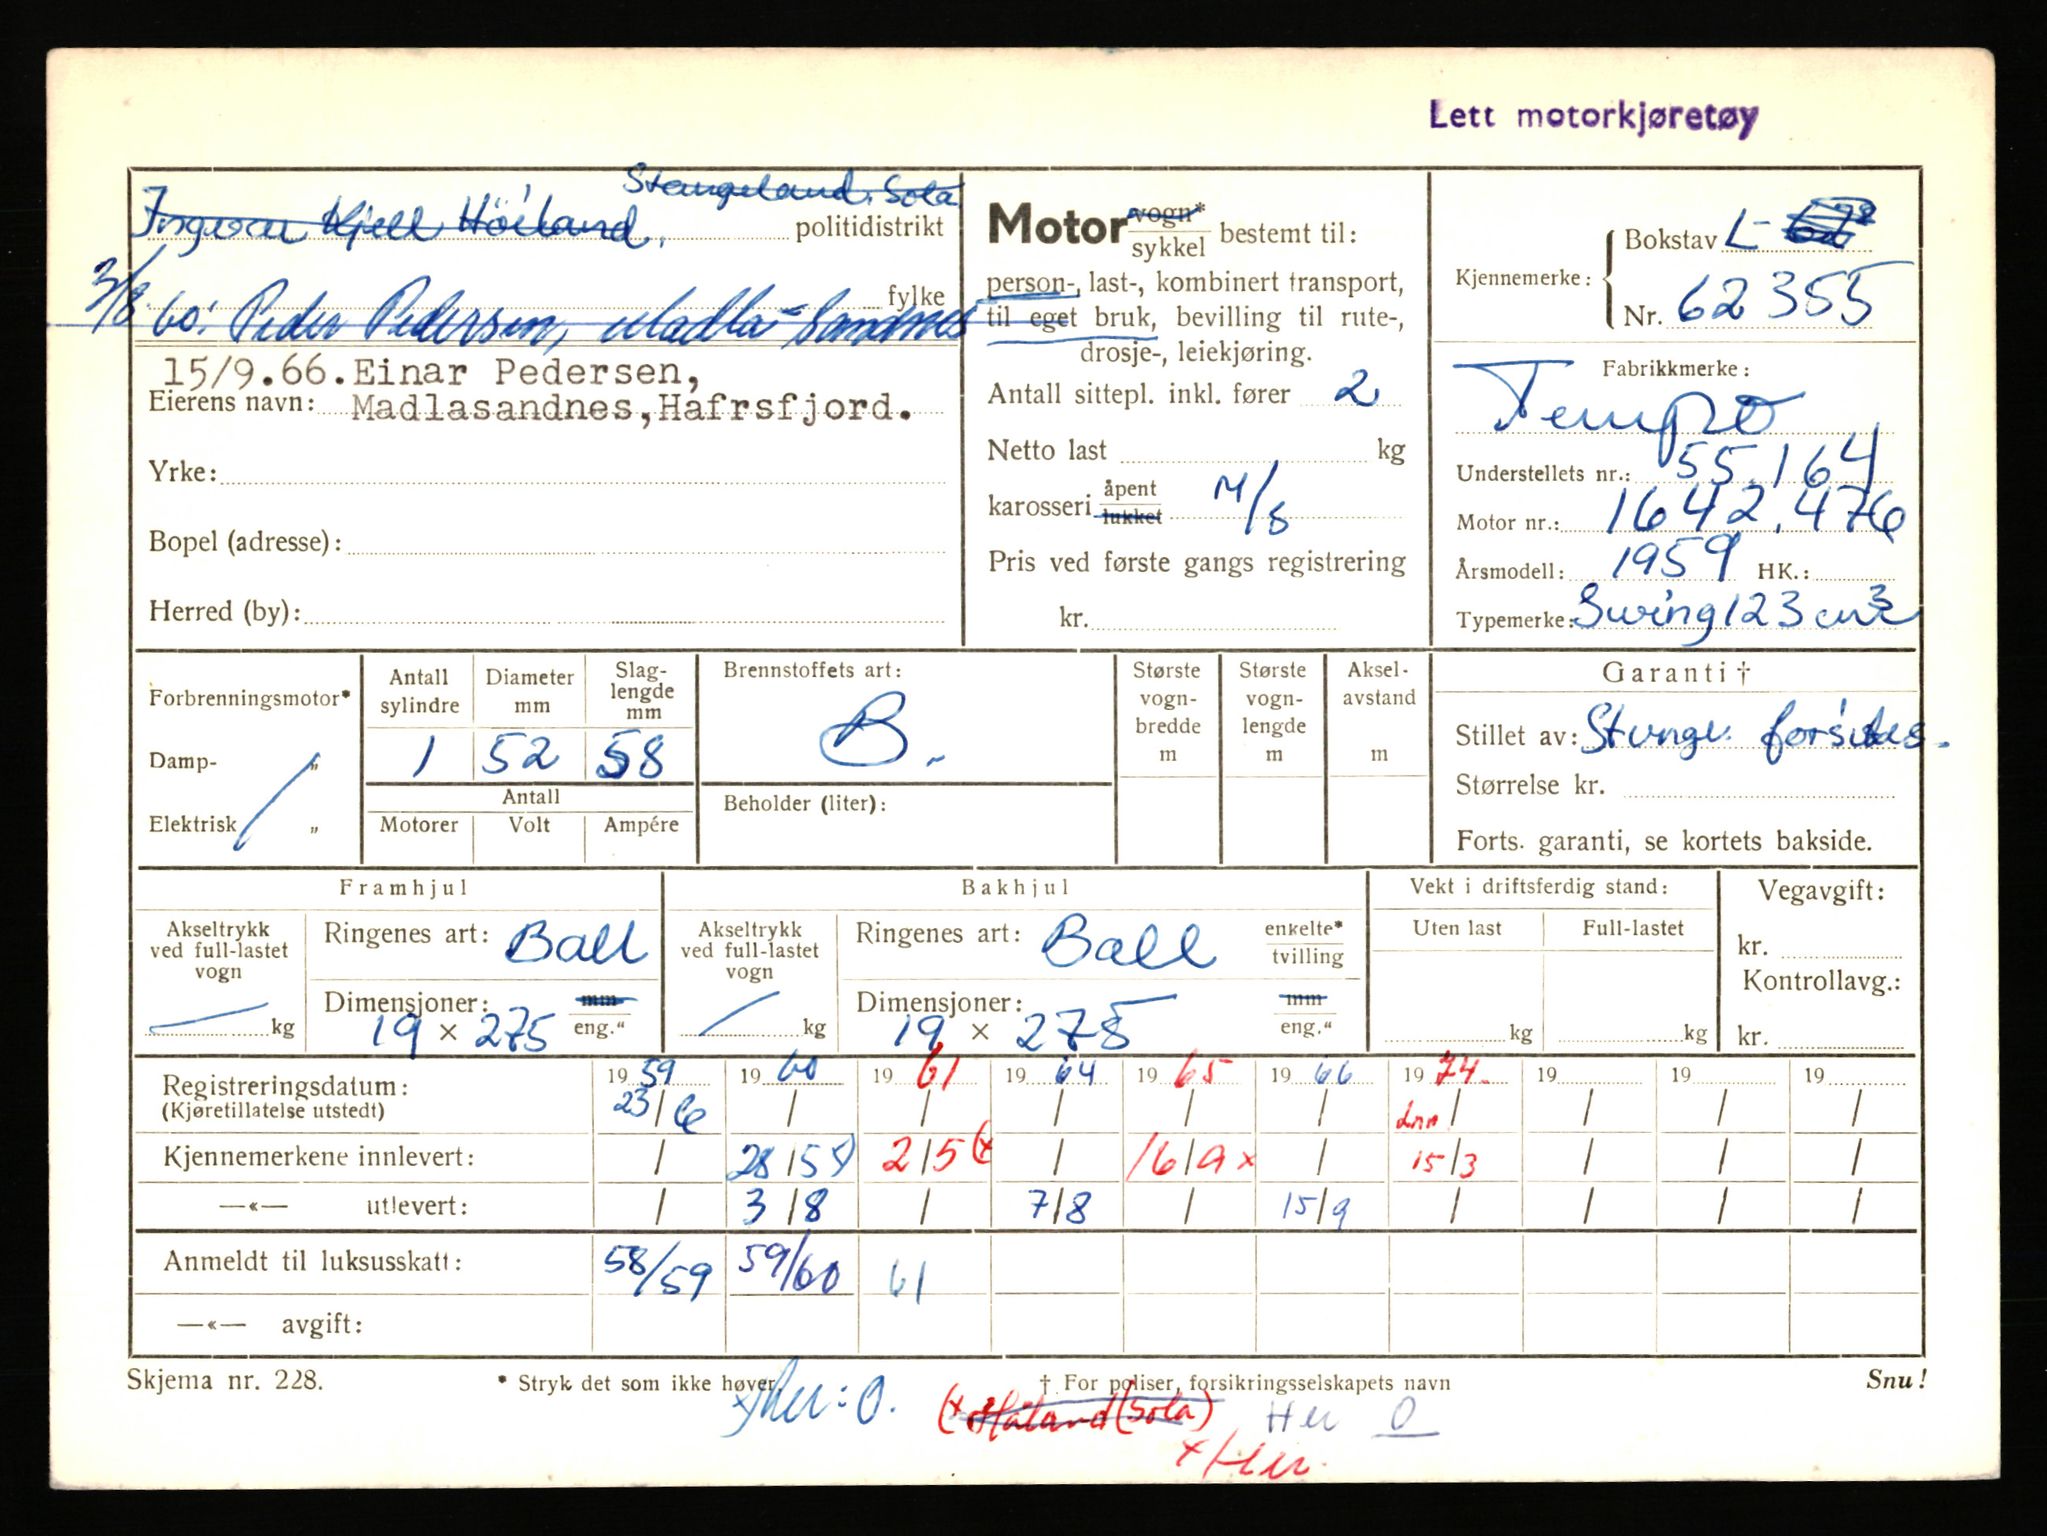 Lett motorkjøretøy
Stangeland, Sola
Ingvar Kjell Höiland, politidistrikt
fylke
3/8 60. Peder Pedersen, Madla-Sandnes
15/9.66. Einar Pedersen,
Eierens navn: Madlasandnes, Hafrsfjord.
Yrke:
Bopel (adresse):
Herred (by):
Motor vogn* sykkel bestemt til:
person-, last-, kombinert transport,
til eget bruk, bevilling til rute-,
drosje-, leiekjøring.
Antall sittepl. inkl. fører 2
Netto last kg
karosseri åpent lukket M/S
Pris ved første gangs registrering
kr.
Kjennemerke:
Bokstav L-
Nr. 62355
Fabrikkmerke:
Tempo
Understellets nr.: 55.164
Motor nr.: 1642.476
Årsmodell: 1959 HK.:
Typemerke: Swing 123 cm3
Forbrenningsmotor*
Damp- „
Elektrisk „
Antall sylindre 1
Diameter mm 52
Slag-lengde mm 58
Antall
Motorer Volt Ampére
Brennstoffets art:
B.
Beholder (liter):
Største vogn-bredde m
Største vogn-lengde m
Aksel-avstand m
Garanti †
Stillet av:
Størrelse kr.
Forts. garanti, se kortets bakside.
Framhjul
Akseltrykk ved full-lastet vogn kg
Ringenes art: Ball
Dimensjoner: mm
19 × 275 eng."
Bakhjul
Akseltrykk ved full-lastet vogn kg
Ringenes art: Ball enkelte* tvilling
Dimensjoner: mm
19 × 275 eng."
Vekt i driftsferdig stand:
Uten last Full-lastet
kg kg
Vegavgift:
kr.
Kontrollavg.:
kr.
Registreringsdatum: 1959 1960 1961 1964 1965 1966 1974. 19 19 19
(Kjøretillatelse utstedt) 23/6 / / / / / / / / /
Kjennemerkene innlevert: / 28/5 2/5 (x / 16/9 x / 15/3 / / /
—«— utlevert: / 3/8 / 7/8 / 15/9 / / / /
Anmeldt til luksusskatt: 58/59 59/60 61
—«— avgift:
Skjema nr. 228. * Stryk det som ikke høver. † For poliser, forsikringsselskapets navn Snu!
x) her: O. (x Håland (Sola) Her O
x/Her.